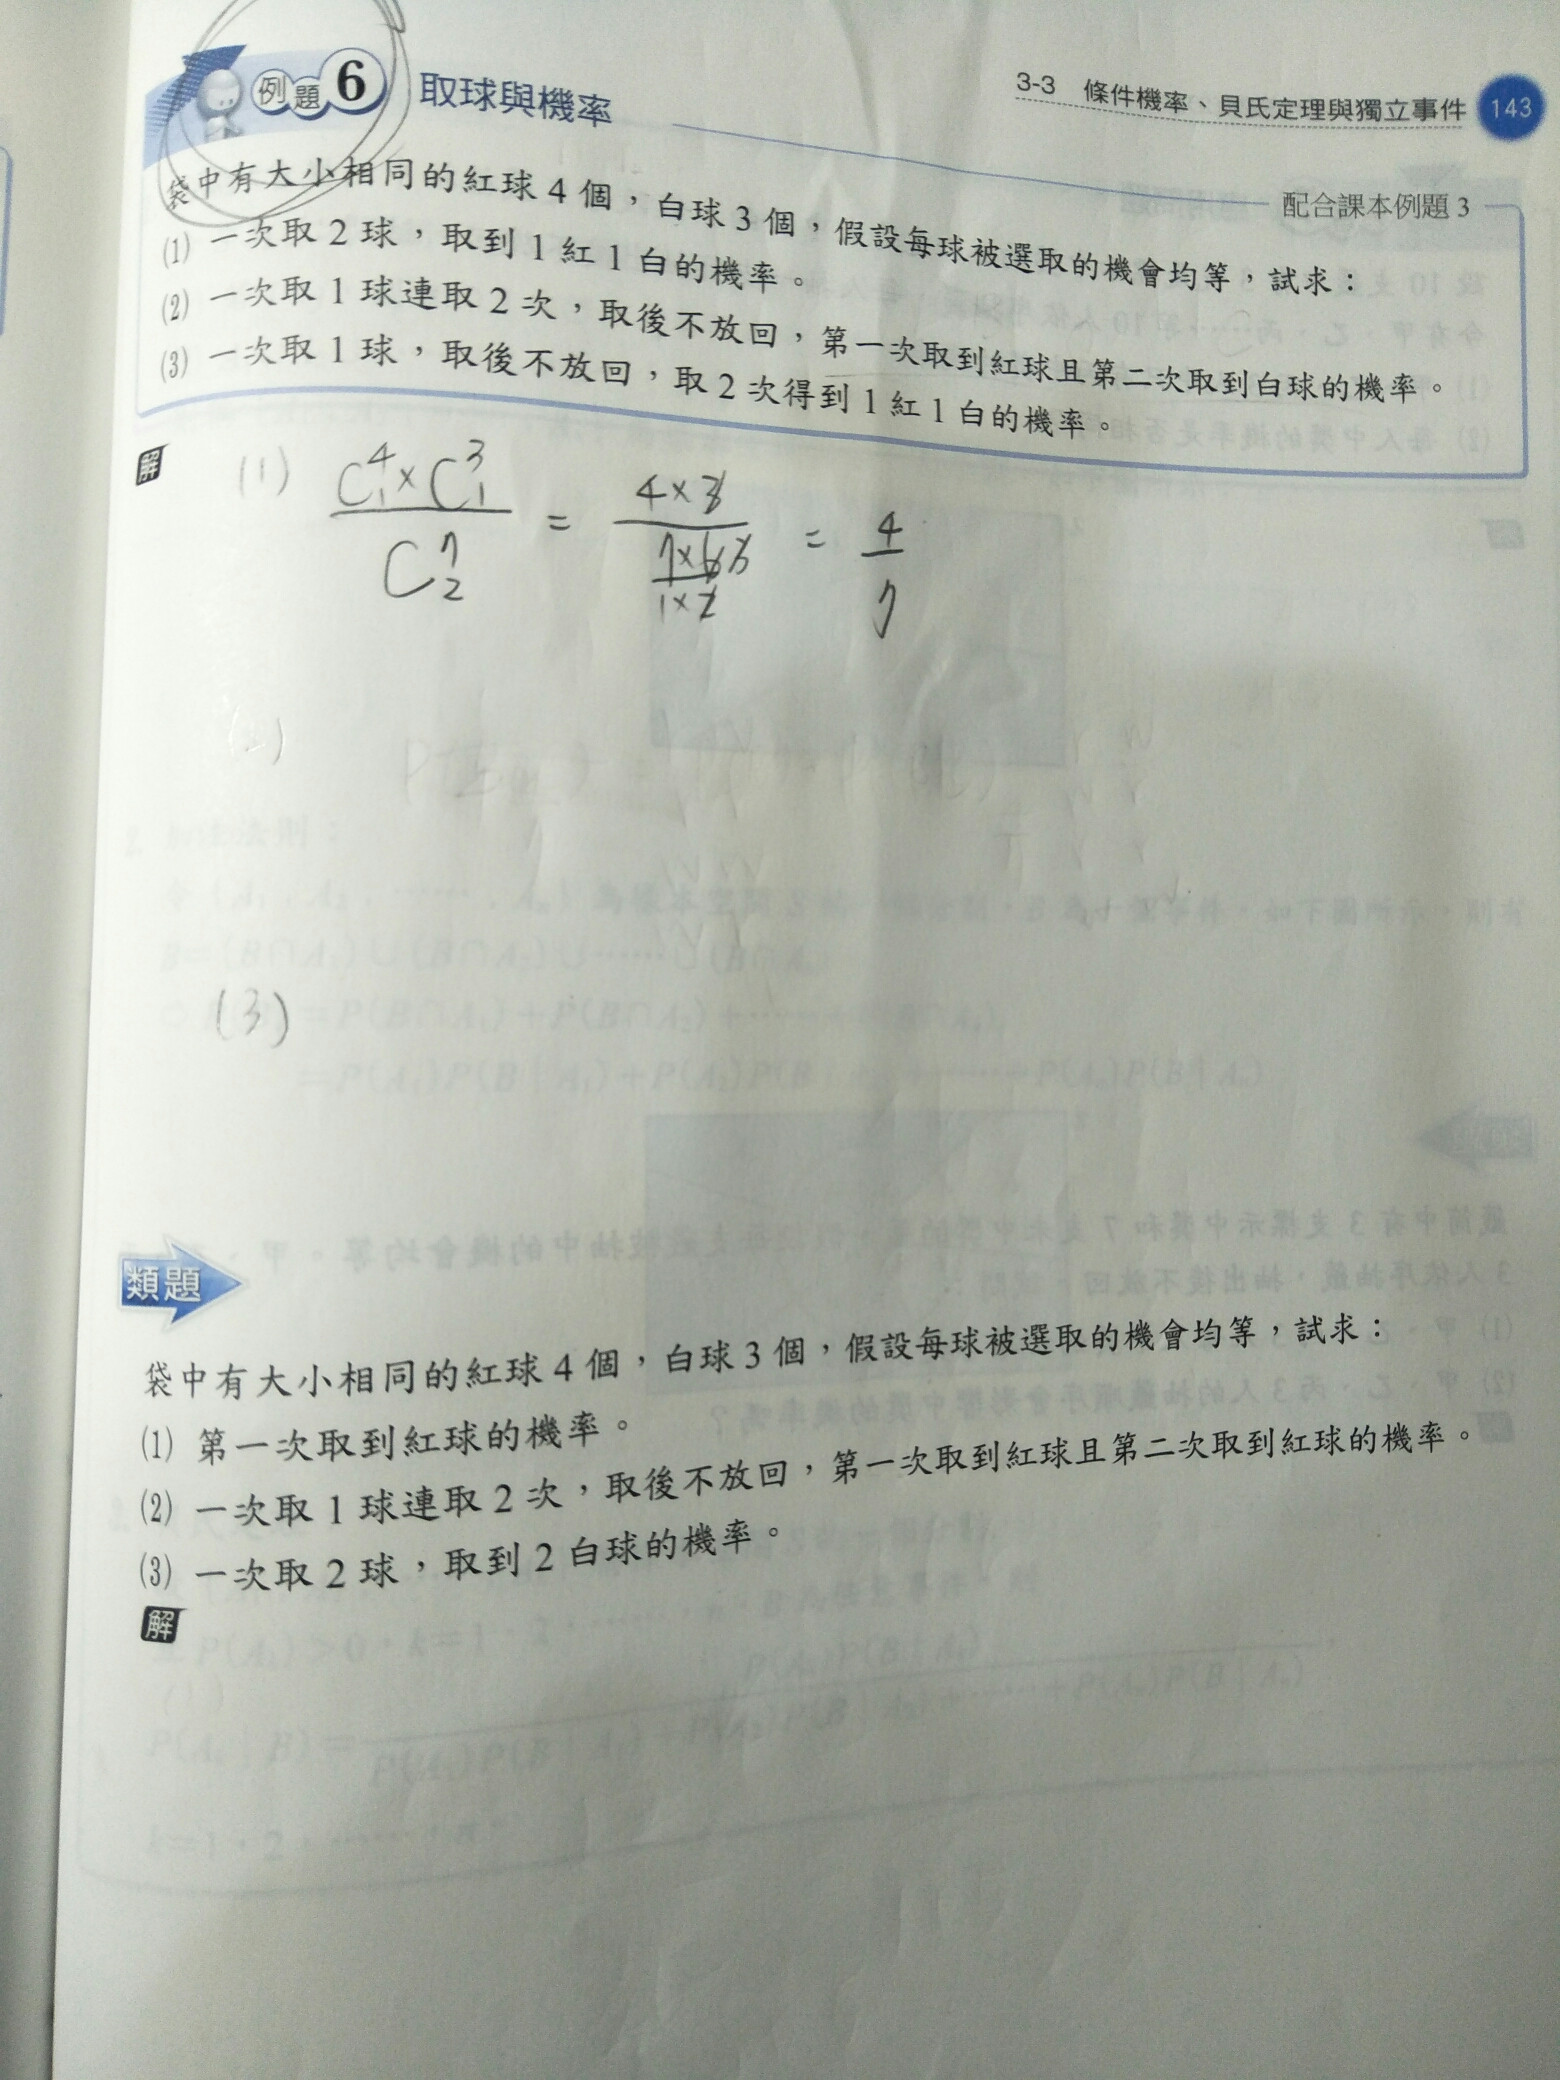 3-3 條件機率、貝氏定理與獨立事件 143
例題6 取球與機率
配合課本例題 3
袋中有大小相同的紅球 4 個，白球 3 個，假設每球被選取的機會均等，試求：
(1) 一次取 2 球，取到 1 紅 1 白的機率。
(2) 一次取 1 球連取 2 次，取後不放回，第一次取到紅球且第二次取到白球的機率。
(3) 一次取 1 球，取後不放回，取 2 次得到 1 紅 1 白的機率。
解
(1) C⁴₁×C³₁ / C⁷₂ = 4×3 / (7×6 / 1×2) = 4/7
(2)
(3)
類題
袋中有大小相同的紅球 4 個，白球 3 個，假設每球被選取的機會均等，試求：
(1) 第一次取到紅球的機率。
(2) 一次取 1 球連取 2 次，取後不放回，第一次取到紅球且第二次取到紅球的機率。
(3) 一次取 2 球，取到 2 白球的機率。
解